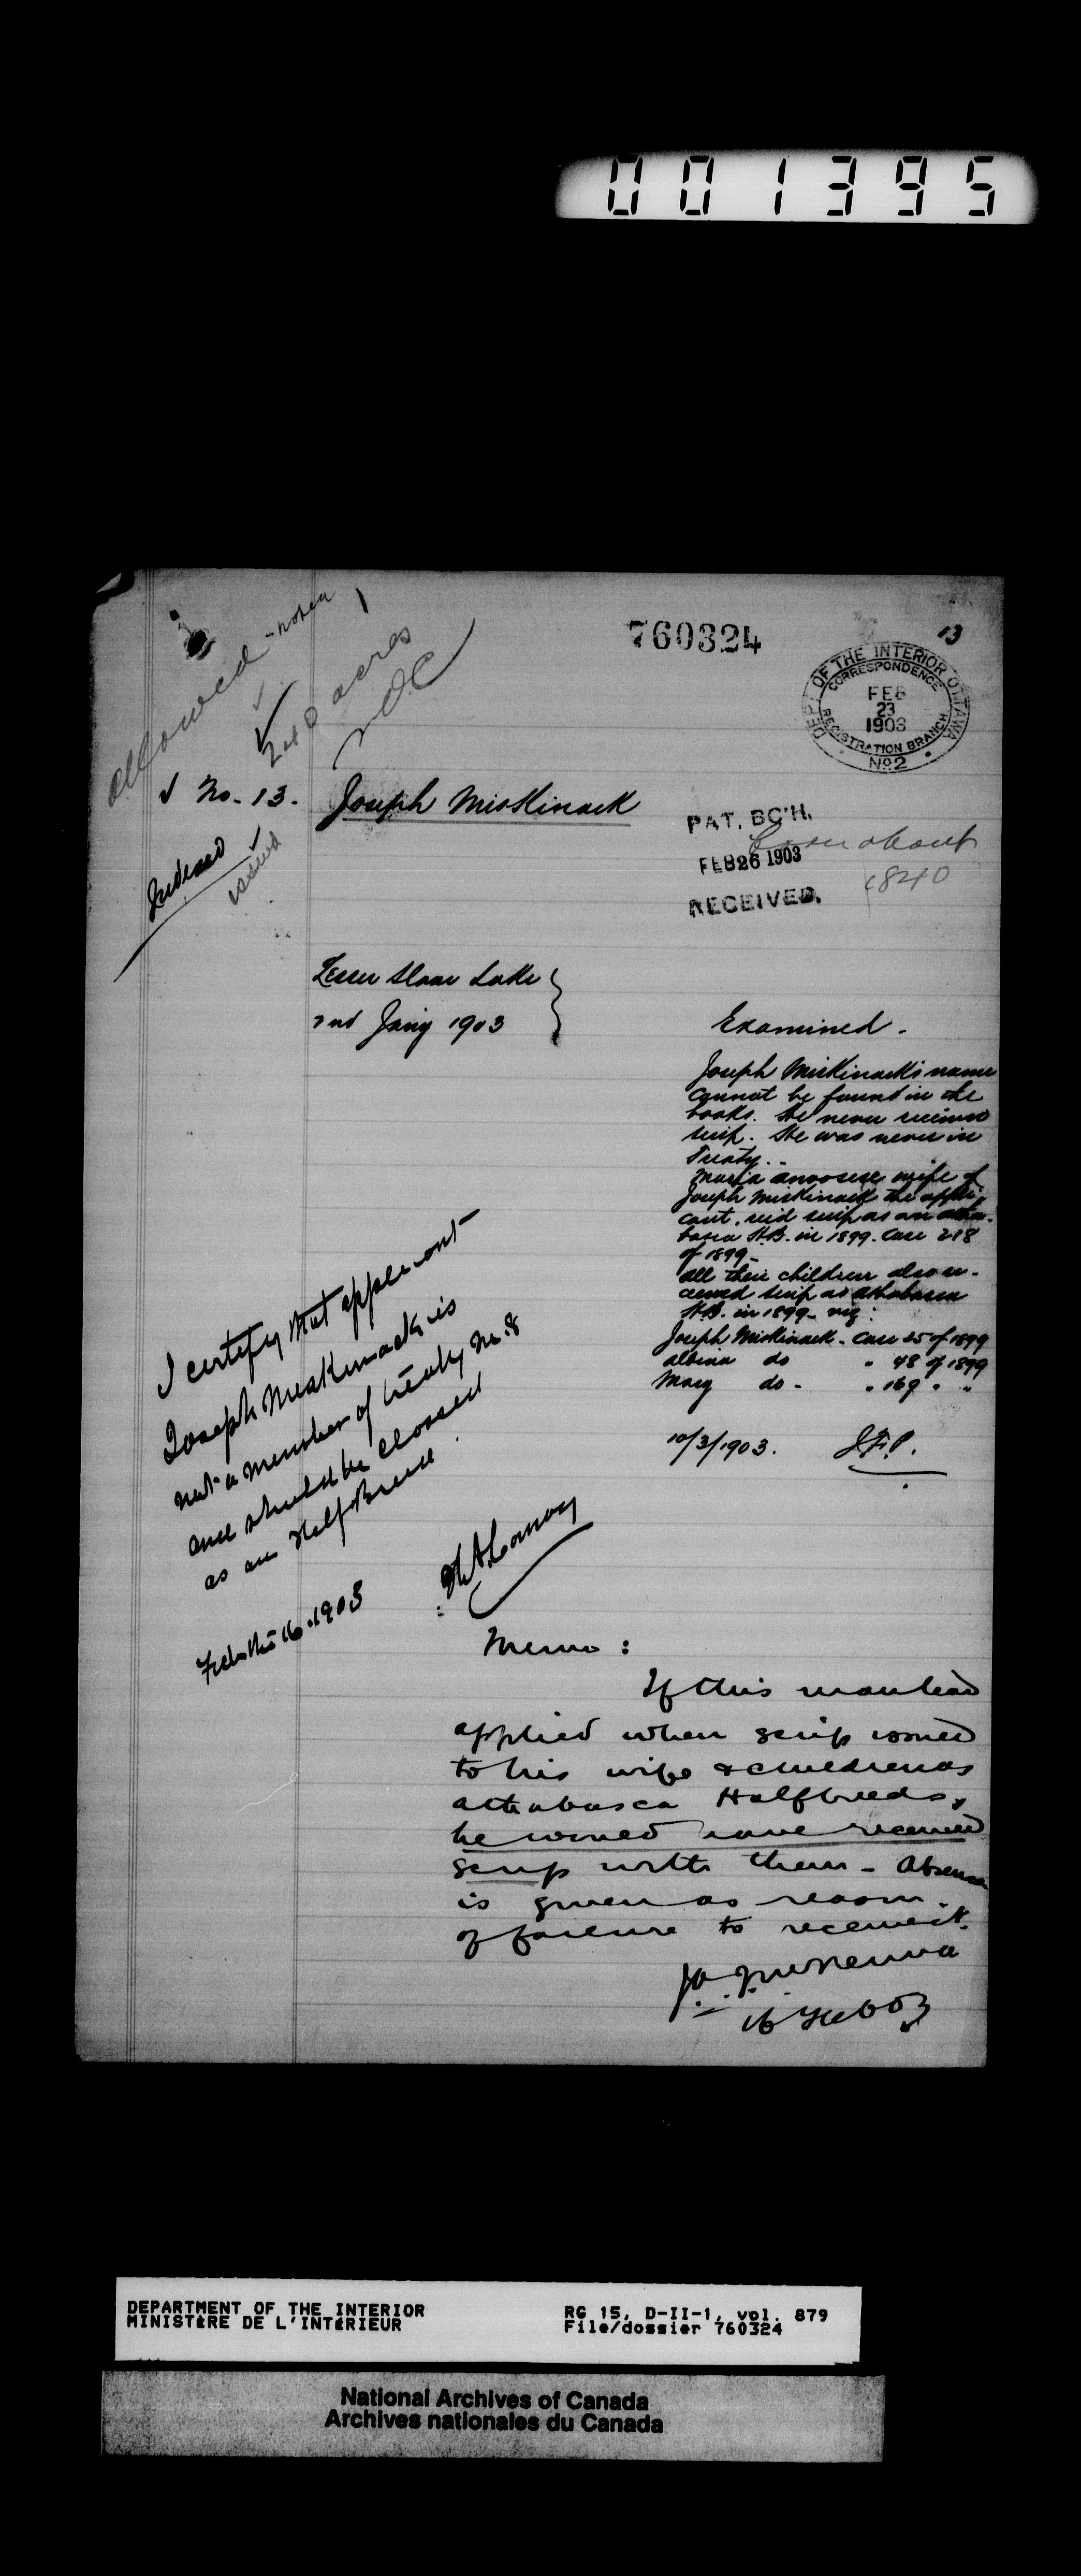 001395
760324
13
DEPT OF THE INTERIOR OTTAWA
CORRESPONDENCE
FEB
23
1903
REGISTRATION BRANCH
No 2
allowed noted
240 acres
√ No. 13. Joseph Miskinack
PAT. BC'H.
FEB 26 1903
RECEIVED.
Born about
1840
Indexed
issued
Lesser Slave Lake
2nd Jan'y 1903
Examined.
Joseph Miskinack's name
cannot be found in the
books. He never received
scrip. He was never in
Treaty.
Maria wife of
Joseph Miskinack the appli-
cant, rec'd scrip as an Atha-
basca H.B. in 1899. Case 218
of 1899.
All their children also re-
ceived scrip as Athabasca
H.B. in 1899. viz:
Joseph Miskinack. Case 25 of 1899
Albina do " 48 of 1899
Mary do - " 169 " "
10/3/1903. J.F.P.
I certify that applicant
Joseph Meskinack is
not a member of treaty No. 8
and should be classed
as an Half Breed.
Feb. 16. 1903
Memo:
If this man had
applied when scrip issued
to his wife & children as
Athabasca Halfbreeds,
he would have received
scrip with them - Absence
is given as reason
of failure to receive it.
16 Feb 03
DEPARTMENT OF THE INTERIOR
MINISTÈRE DE L'INTÉRIEUR
RG 15, D-II-1, vol. 879
File/dossier 760324
National Archives of Canada
Archives nationales du Canada